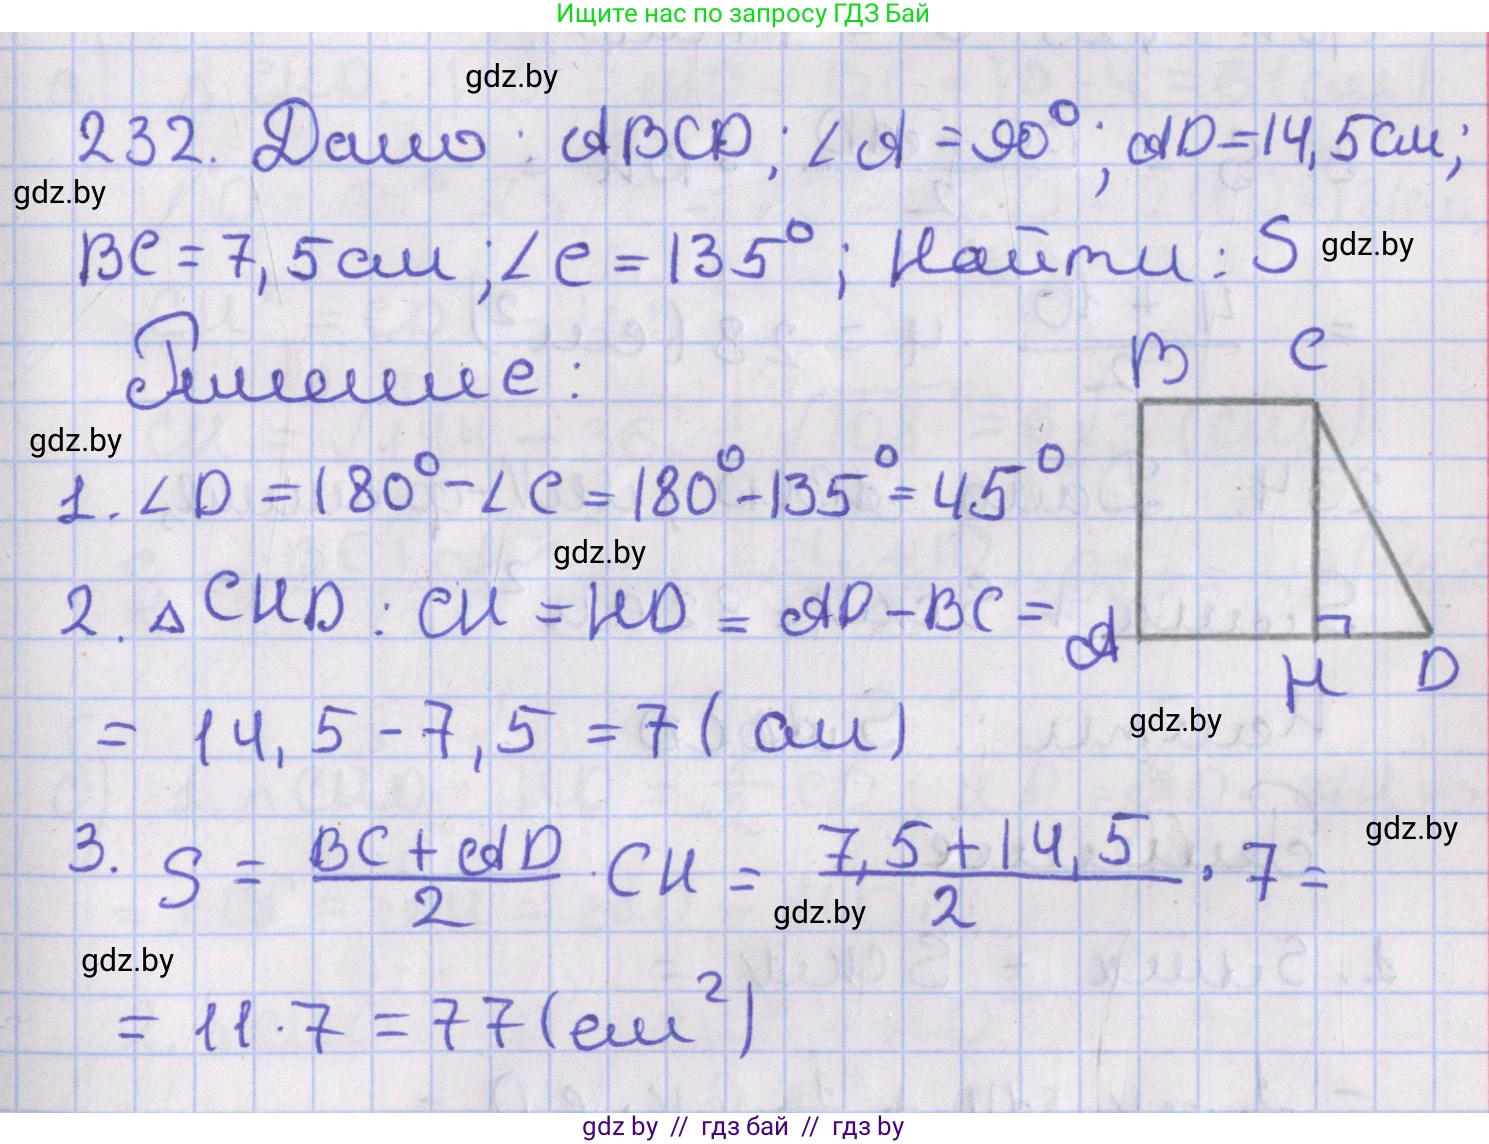 Ищите нас по запросу ГДЗ Бай
gdz.by
232. Дано: ABCD; ∠A = 90°; AD = 14,5 см;
gdz.by
BC = 7,5 см; ∠C = 135°; Найти: S
gdz.by
Решение:
B C
gdz.by
1. ∠D = 180° - ∠C = 180° - 135° = 45°
gdz.by
2. △CHD: CH = HD = AD - BC =
A H D
= 14,5 - 7,5 = 7 (см)
gdz.by
3. S = (BC + AD)/2 · CH = (7,5 + 14,5)/2 · 7 =
gdz.by
gdz.by
gdz.by
= 11 · 7 = 77 (см²)
gdz by // гдз бай // гдз by